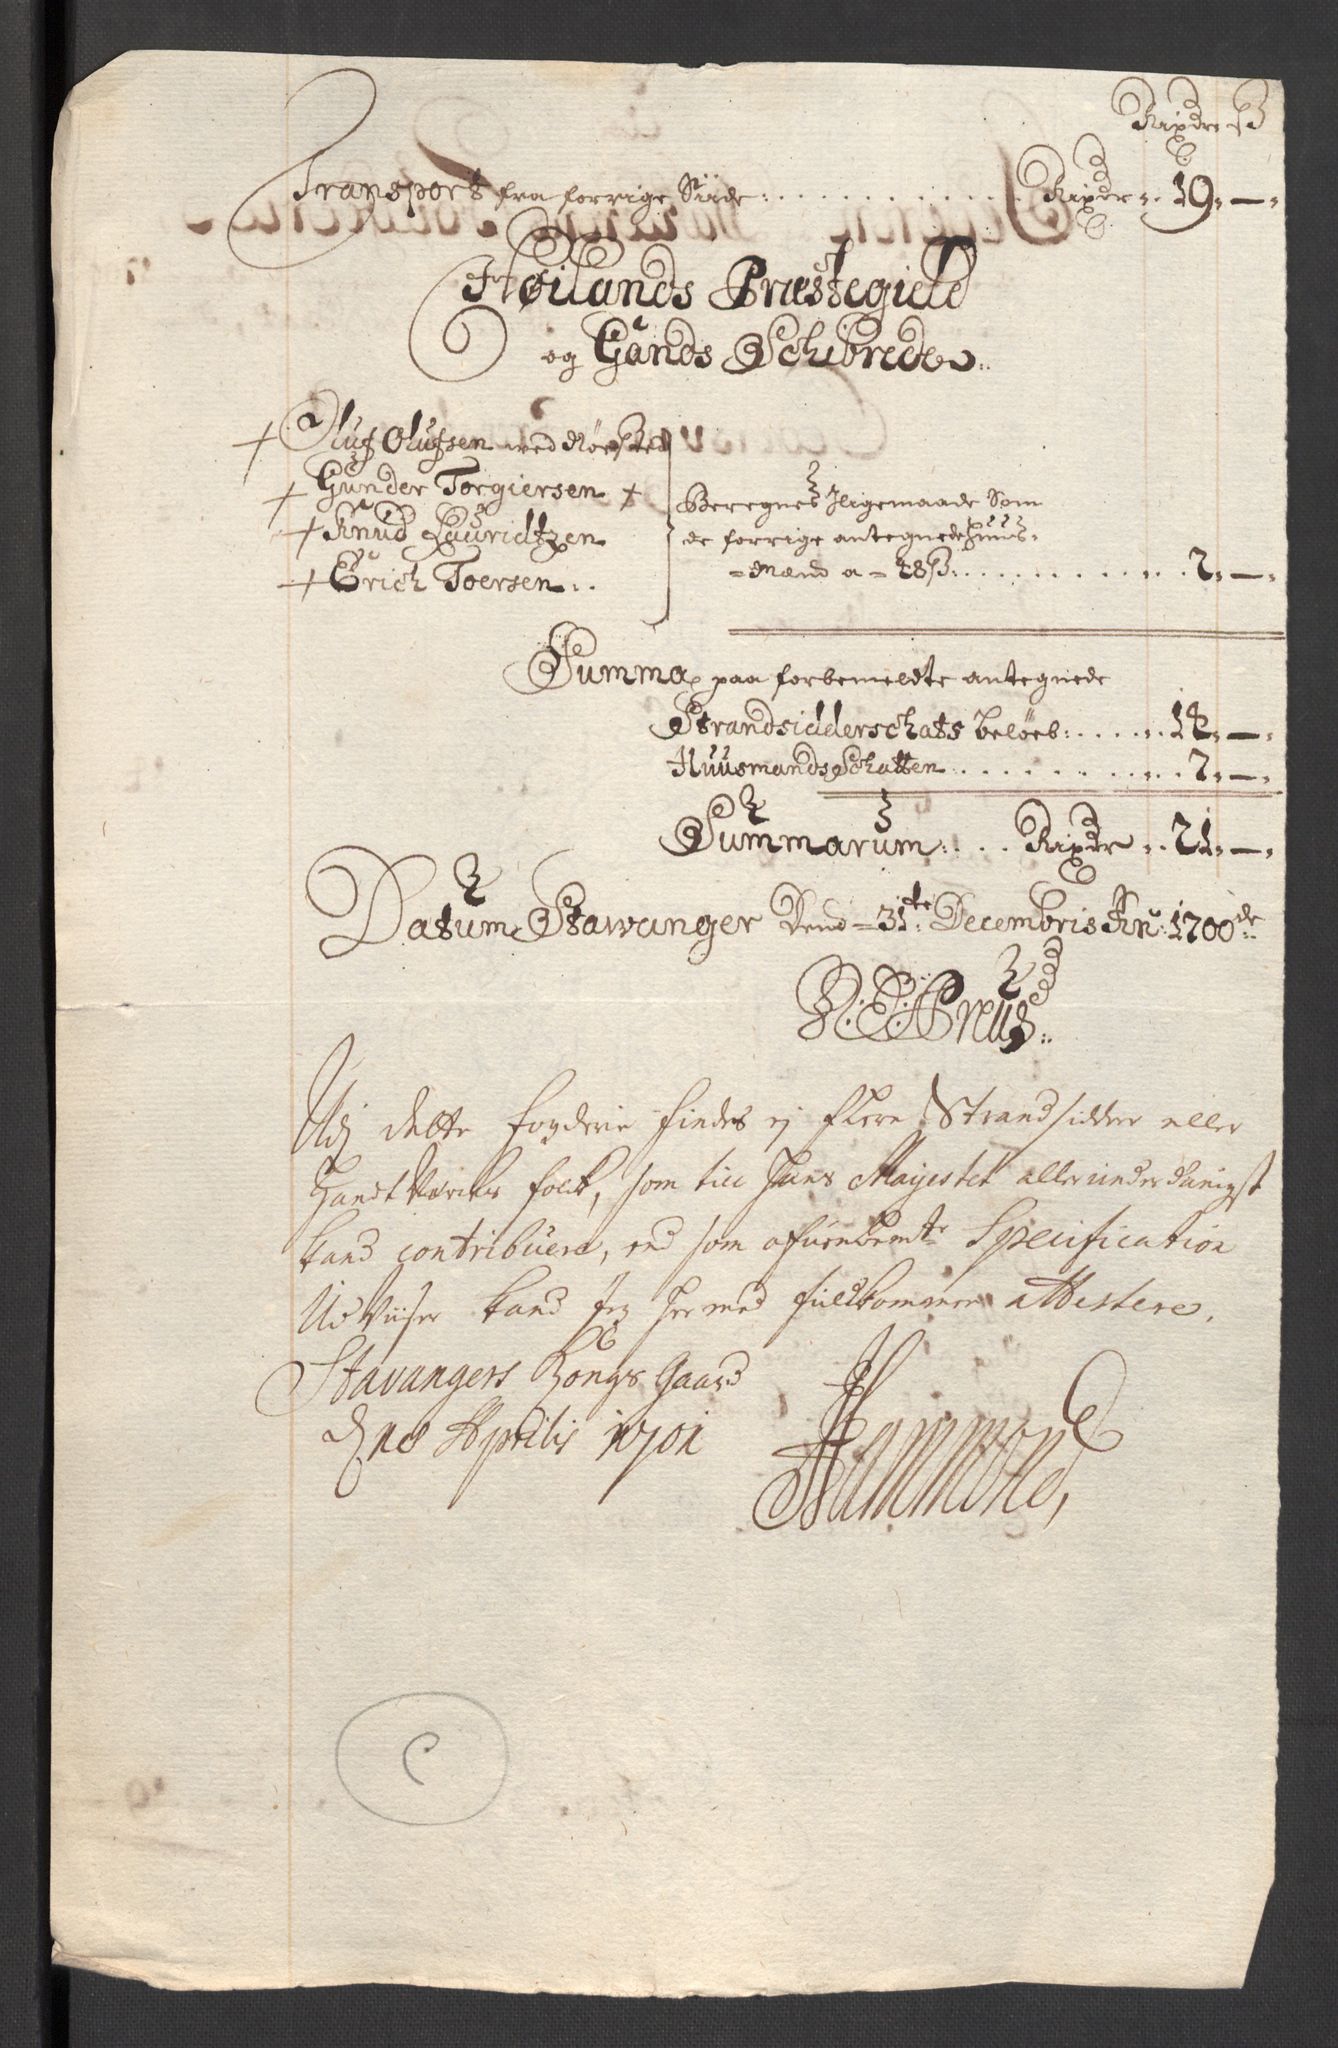 Rixdr ß
Transport fra forrige Siide: Rixdr 19. —
Høilands Præstegield
og Gands Schibrede
Oluf Olufsen ved
Gunder Torgiersen
Knud Lauridtzen
Erich Toersen
Beregnes Iligemaade Som
de forrige antegnede Huus-
mænd a 48 ß: 2. —
Summa paa forbemeldte antegnede
Strandsidderschats beløeb: —
Huusmands Schatten 2. —
Summarum Rixdr 21. —
Datum Stawanger Dend 31te Decembris Ano 1700de
Udj dette fogderie findes ej flere Strandsidder eller
Handtverks folck, som till Hans Mayestet allerunderdanigst
kand contribuere, end som ofuenbemte Specification
Udviiser kand Jeg hermed fuldkommen attestere.
Stavangers Kongsgaard
Aprilis 1701
Hammond
C